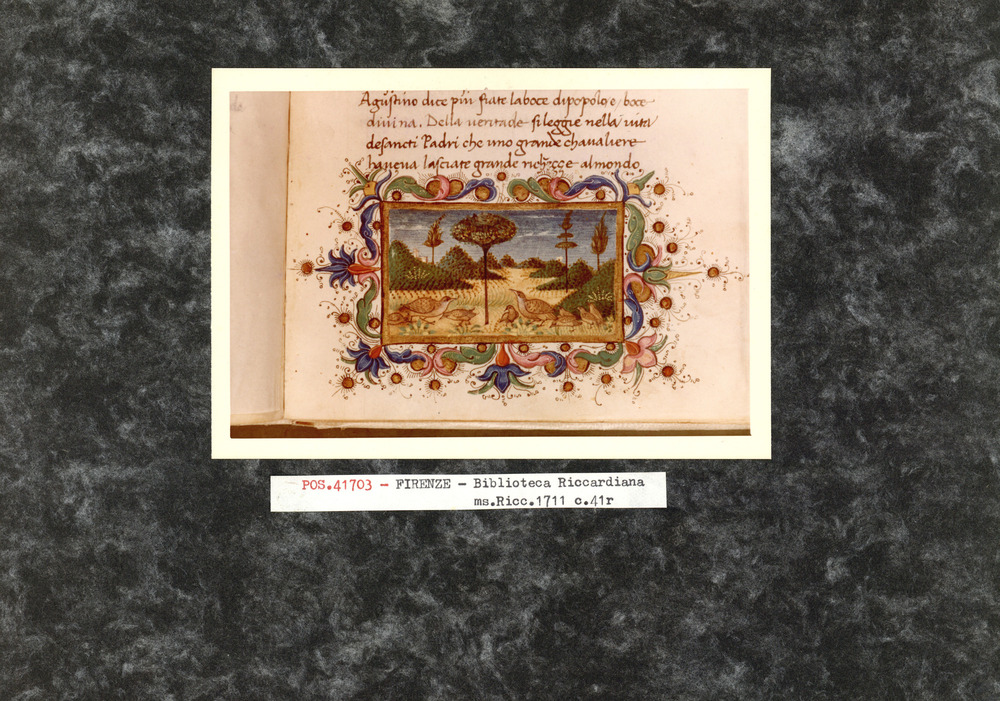 Agustino dice piu fiate laboce dipopolo e boce
divina. Della veritade sileggie nella vita
desancti Padri che uno grande chavaliere
haveva lasciate grande richezze almondo
POS.41703 - FIRENZE - Biblioteca Riccardiana
ms.Ricc.1711 c.41r